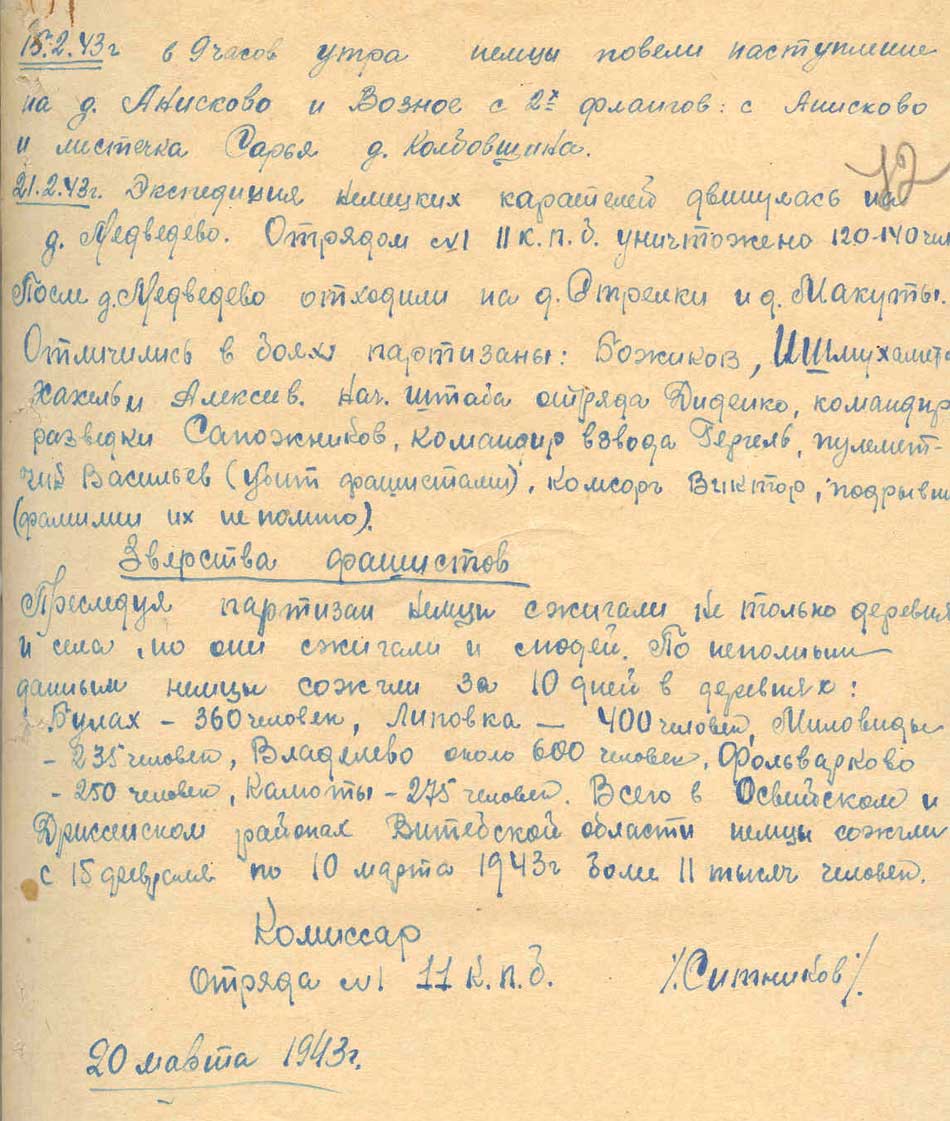 15.2.43г в 9 часов утра немцы повели наступление
на д. Анисково и Возное с 2х флангов: с Анисково
и местечка Сарья д. Колбовщина.
12
21.2.43г. Экспедиция немецких карателей двинулась на
д. Медведево. Отрядом №1 II к.п.б. уничтожено 120-140 чел
После д. Медведево отходили на д. Стрелки и д. Макуты.
Отличились в боях партизаны: Божиков, Ишмухамето
Хахель и Алексеев. Нач. штаба отряда Диденко, командир
разведки Сапожников, командир взвода Гергель, пулемет-
чик Васильев (убит фашистами), комсорг Виктор, подрывни
(фамилии их не помню).
Зверства фашистов
Преследуя партизан немцы сжигали не только деревни
и села, но они сжигали и людей. По неполным
данным немцы сожгли за 10 дней в деревнях:
Булах - 360 человек, Липовка - 400 человек, Миловиды
- 235 человек, Владелево около 600 человек, Фольварково
- 250 человек, Камоты - 275 человек. Всего в Освейском и
Дриссенском районах Витебской области немцы сожгли
с 15 февраля по 10 марта 1943г боли 11 тысяч человек.
Комиссар
Отряда №1 11 К.п.б. /.Ситников/.
20 марта 1943г.